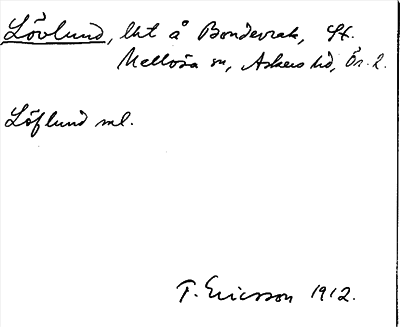 Lövlund, lht å Bondevrak, St.
Mellösa sn, Askers hd, Ör. l.
Löflund ml.
T. Ericsson 1912.